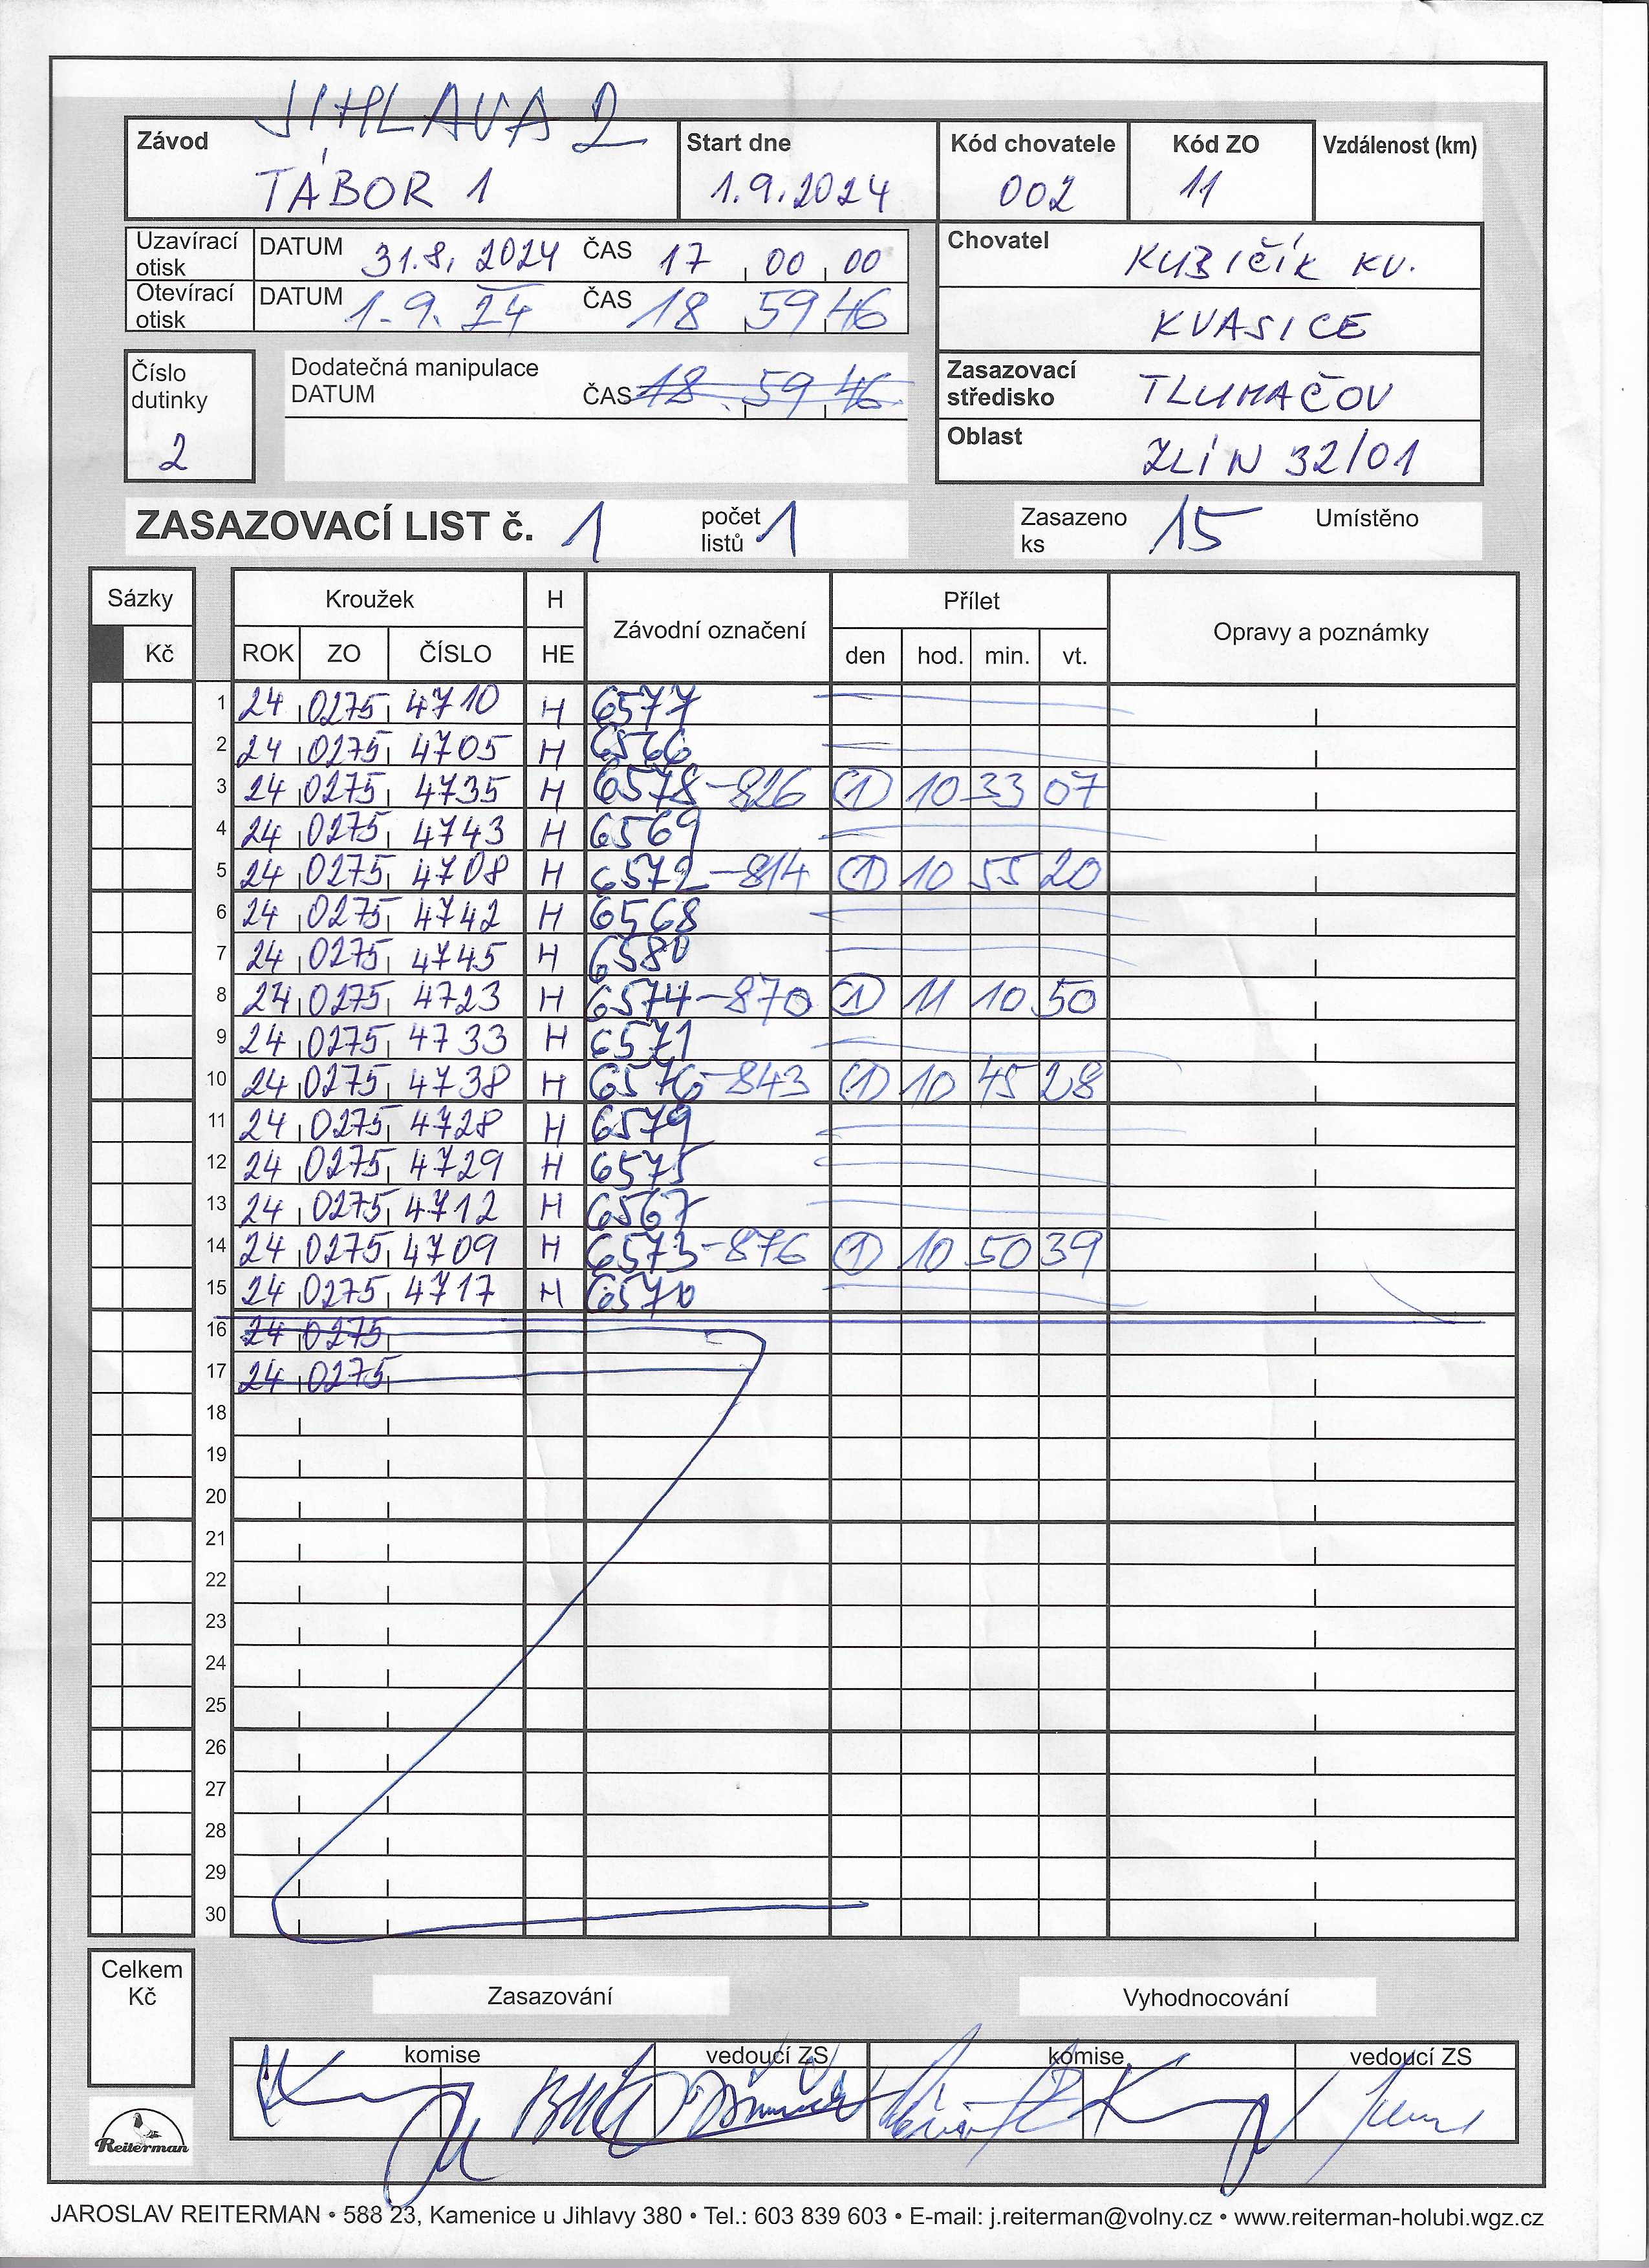 JIHLAVA 2
Závod TÁBOR 1 Start dne 1.9.2024 Kód chovatele 002 Kód ZO 11 Vzdálenost (km)
Uzavírací otisk DATUM 31.8. 2024 ČAS 17 00 00
Otevírací otisk DATUM 1.9. 24 ČAS 18 59 46
Chovatel KUBIČÍK KV.
KVASICE
Číslo dutinky 2
Dodatečná manipulace
DATUM ČAS 18 59 46
Zasazovací středisko TLUMAČOV
Oblast ZLÍN 32/01
ZASAZOVACÍ LIST č. 1 počet listů 1 Zasazeno ks 15 Umístěno
Sázky Kroužek H Závodní označení Přílet Opravy a poznámky
Kč ROK ZO ČÍSLO HE den hod. min. vt.
1 24 0275 4710 H 6577
2 24 0275 4705 H 6566
3 24 0275 4735 H 6578-826 1 10 33 07
4 24 0275 4743 H 6569
5 24 0275 4708 H 6572-814 1 10 55 20
6 24 0275 4742 H 6568
7 24 0275 4745 H 6580
8 24 0275 4723 H 6574-870 1 11 10 50
9 24 0275 4733 H 6571
10 24 0275 4738 H 6576-843 1 10 45 28
11 24 0275 4728 H 6579
12 24 0275 4729 H 6575
13 24 0275 4712 H 6567
14 24 0275 4709 H 6573-876 1 10 50 39
15 24 0275 4717 H 6570
16 24 0275
17 24 0275
18
19
20
21
22
23
24
25
26
27
28
29
30
Celkem Kč
Zasazování Vyhodnocování
komise vedoucí ZS komise vedoucí ZS
Reiterman
JAROSLAV REITERMAN • 588 23, Kamenice u Jihlavy 380 • Tel.: 603 839 603 • E-mail: j.reiterman@volny.cz • www.reiterman-holubi.wgz.cz